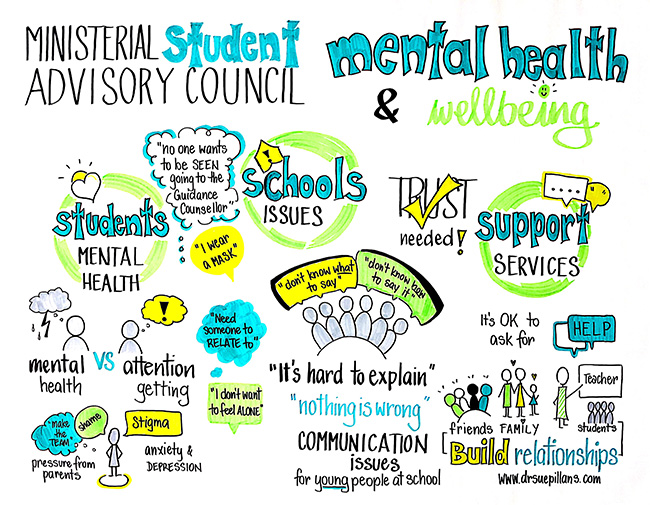 MINISTERIAL student
ADVISORY COUNCIL
mental health
& wellbeing
"no one wants
to be SEEN
going to the
Guidance
Counsellor"
"I wear
a MASK"
!
schools
ISSUES
students
MENTAL
HEALTH
TRUST
needed!
support
SERVICES
"don't know what
to say"
"don't know how
to say it"
!
mental VS attention
health getting
"Need
someone to
RELATE to"
"I don't want
to feel ALONE"
"make
the
TEAM"
shame
Stigma
pressure from
parents
anxiety &
DEPRESSION
"It's hard to explain"
"nothing is wrong"
COMMUNICATION
issues
for young people at school
It's OK to
ask for
HELP
friends FAMILY
Teacher
students
[Build relationships]
www.drsuepillans.com